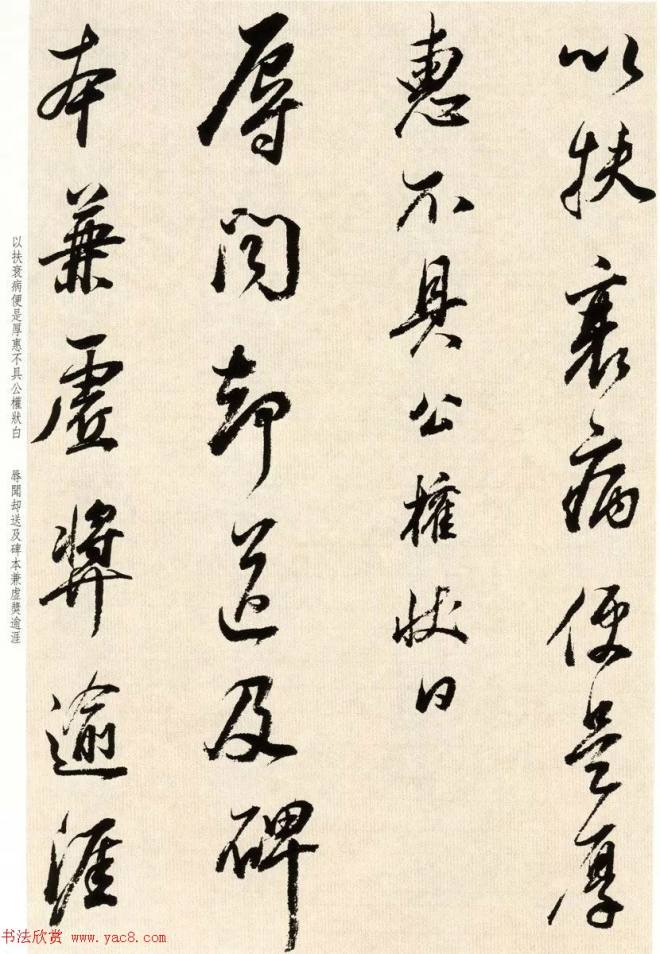 以扶衰病便是厚
惠不具公權狀白
辱問却送及碑
本兼虚獎逾涯
以扶衰病便是厚惠不具公權狀白 辱聞却送及碑本兼虚獎逾涯
书法欣赏 www.yac8.com